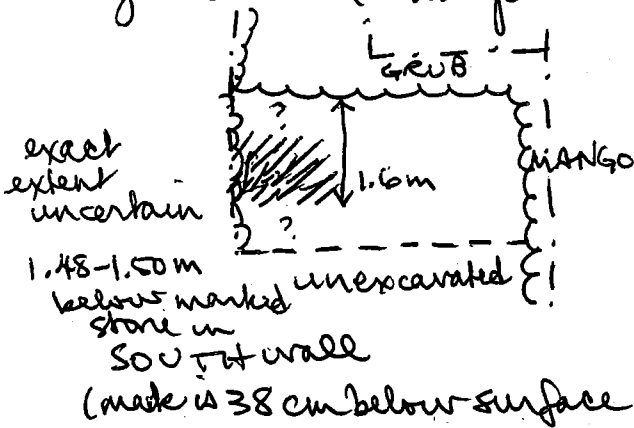 GRUB
?
exact
extent
uncertain
1.6m
MANGO
?
1.48-1.50m
below marked
stone in
SOUTH wall
unexcavated
(mark is 38 cm below surface